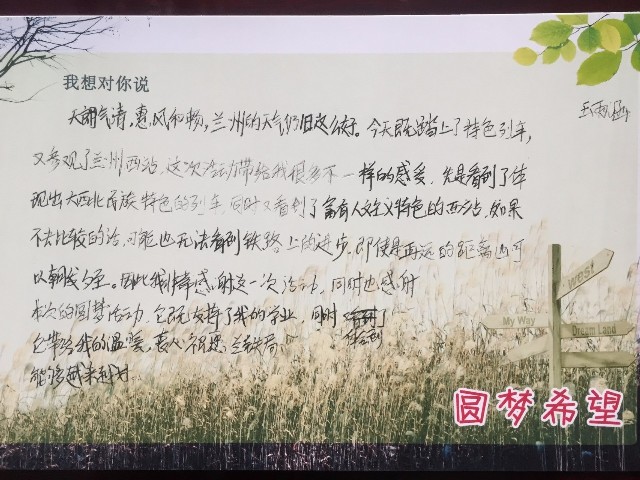 我想对你说
天朗气清,惠风和畅,兰州的天气仍旧这么好。今天既踏上了特色列车,
又参观了兰州西站,这次活动带给我很多不一样的感受,先是看到了体
现出大西北民族特色的列车,同时又看到了富有人文主义特色的西站,如果
不去比较的话,可能也无法看到铁路上的进步,即使是再远的距离也可
以朝发夕至。因此我非常感谢这一次活动,同时也感谢
本次的圆梦活动,它既支持了我的学业,同时
它带给我的温暖,衷心祝愿兰铁局
能够越来越好
West
My Way
Dream Land
圆梦希望